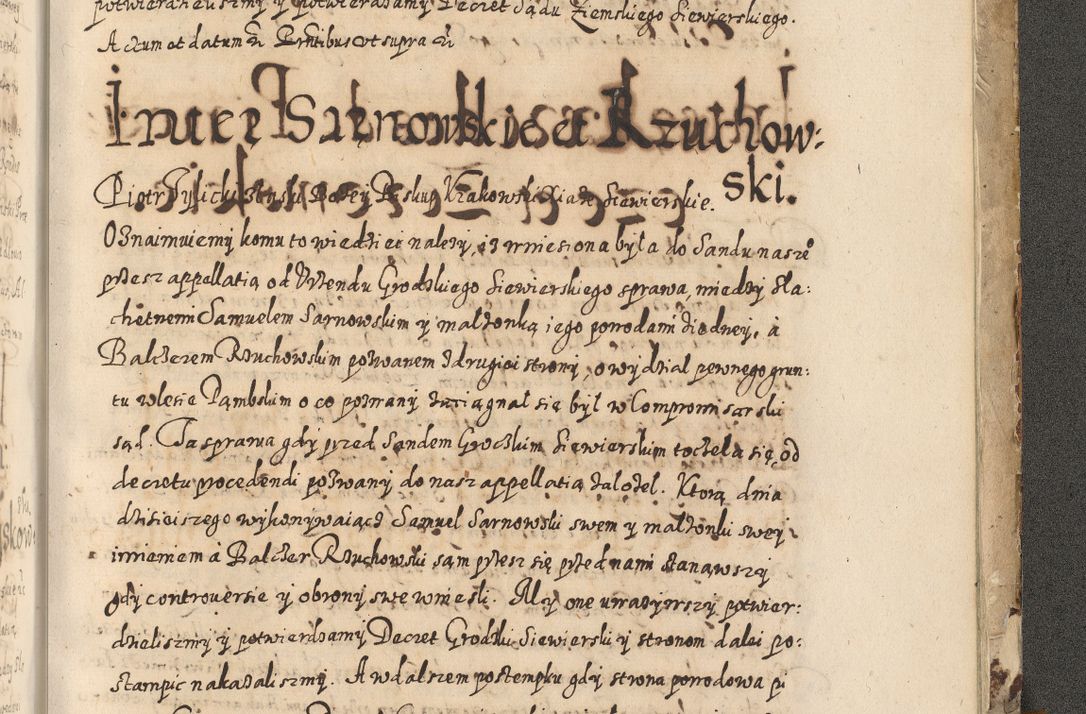 potwierdzeliszmy y potwierdzamy Decret Sądu Ziemskiego Siewierskiego.
Actum et datum Prntibus ut supra
Inter Sarnowskie et Rzuchow:
ski.
Piotr Tylicki Biskup Krakowski Xiąże Siewierskie.
Oznaimuiemy komu to wiedziec nalezy, iz wniesiona była do Sandu nasze°
przesz appellatią od Vrzendu Grodzkiego Siewierskiego sprawa, miedzy szla:
chetnem Samuelem Sarnowskim y małzonką iego powodami z iedney, a
Balczerem Rzuchowskim pozwanem z drugiei strony, o wydział pewnego grun:
tu w lesie Pąmbskim o co pozwany zaciągnał się był w Compromissarski
sąd. Ta sprawa gdy przed Sandem Grockim Siewierskim toczeła się, od
decretu procedendi pozwany do nasz appellatią założeł. Ktorą dnia
dzisieiszego wykonywaiącz Samuel Sarnowski swem y małzonki swey
imieniem a Balczer Rzuchowski sąm przesz się przed nami stanąwszy
gdy controuersie y obrony swe wniesli. A my one uwazywszy potwier:
dzieliszmy y potwierdzamy Decret Grodzki Siewierski y stronom dalei po:
stampic nakazaliszmy. A w dalszem postempku gdy strona powodowa pi